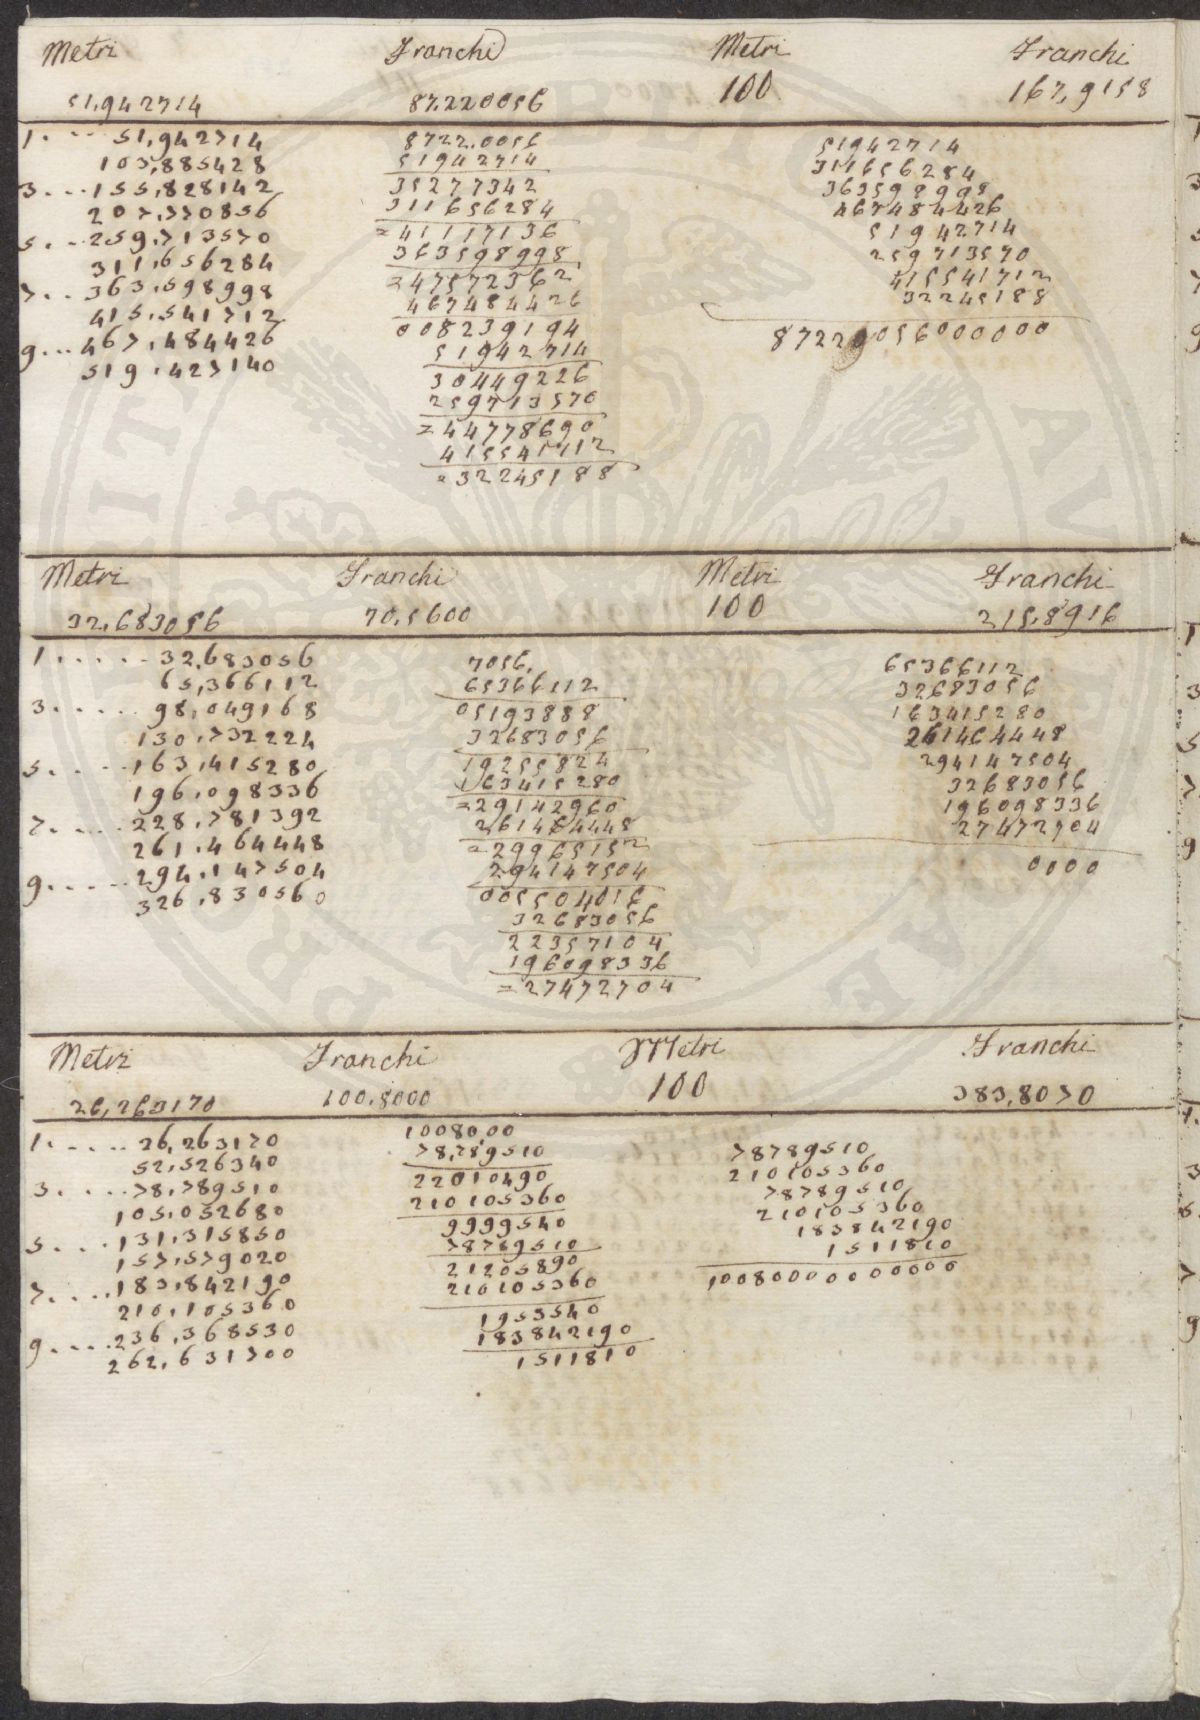 Metri Franchi Metri Franchi
51,942714 87,220056 100 167,9158
1. ... 51,942714
103,885428
3. ... 155,828142
207,770856
5. ... 259,713570
311,656284
7. .. 363,598998
415,541712
9. ... 467,484426
519,427140
8722,0056
51942714
35277342
311656284
=41117136
363598998
=47572362
467484426
008239194
51942714
30449226
259713570
=44778690
415541712
=32245188
51942714
311656284
363598998
467484426
51942714
259713570
415541712
32245188
87220056000000
Metri Franchi Metri Franchi
32,683056 70,5600 100 215,8916
1 . . . . . 32,683056
65,366112
3. . . . . 98,049168
130,732224
5. . . . 163,415280
196,098336
7. . . . 228,781392
261,464448
9. . . . . 294,147504
326,830560
7056,
65366112
05193888
32683056
19255824
163415280
=29142960
261464448
=29965152
294147504
005504016
32683056
22357104
196098336
=27472704
65366112
32683056
163415280
261464448
294147504
32683056
196098336
27472704
0000
Metri Franchi Metri Franchi
26,263170 100,8000 100 383,8070
1. . . . . 26,263170
52,526340
3. . . . 78,789510
105,052680
5. . . . 131,315850
157,579020
7. . . . . 183,842190
210,105360
9. . . . . 236,368530
262,631700
1008000
78,789510
22010490
210105360
9999540
78789510
21205890
210105360
1953540
183842190
1511810
78789510
210105360
78789510
210105360
183842190
1511810
1008000000000